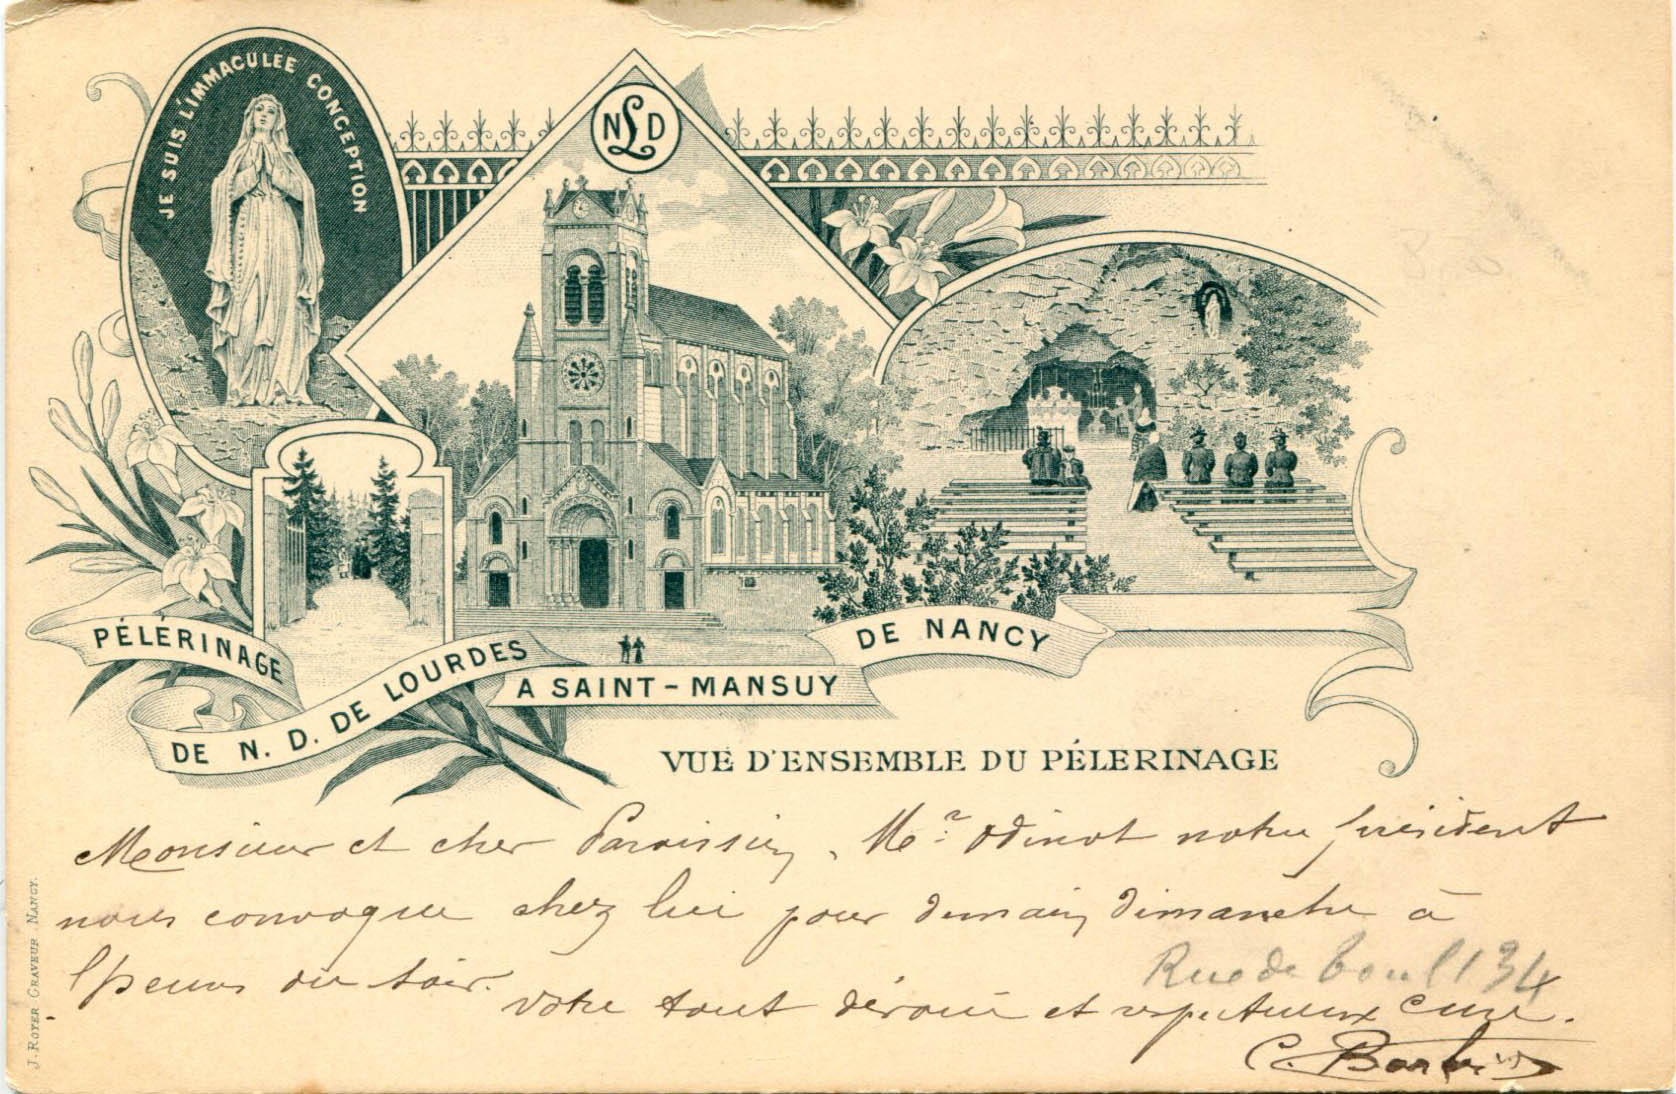 JE SUIS L'IMMACULÉE CONCEPTION
NLD
PÉLÉRINAGE
DE N. D. DE LOURDES
A SAINT-MANSUY
DE NANCY
VUE D'ENSEMBLE DU PÉLERINAGE
Monsieur et cher Paroissien, Mr. Odinot notre président
nous convoque chez lui pour demain dimanche à
heures du soir.
Rue de 134
votre tout dévoué et respectueux Curé.
C.
J. ROYER GRAVEUR. NANCY.